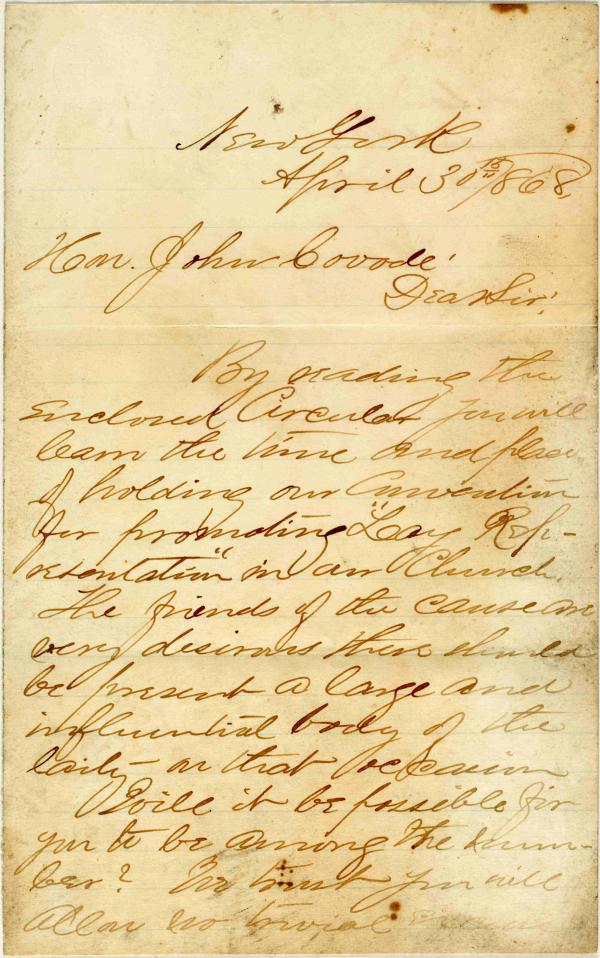 New York
April 30th 1868,
Hon. John Covode,
Dear Sir;
By reading the
enclosed Circular you will
learn the time and place
of holding our Convention
for promoting "Lay Rep-
resentation" in our Church.
The friends of the cause are
very desirous there should
be present a large and
influential body of the
laity on that occasion
Will it be possible for
you to be among the num-
ber? We trust you will
allow no trivial